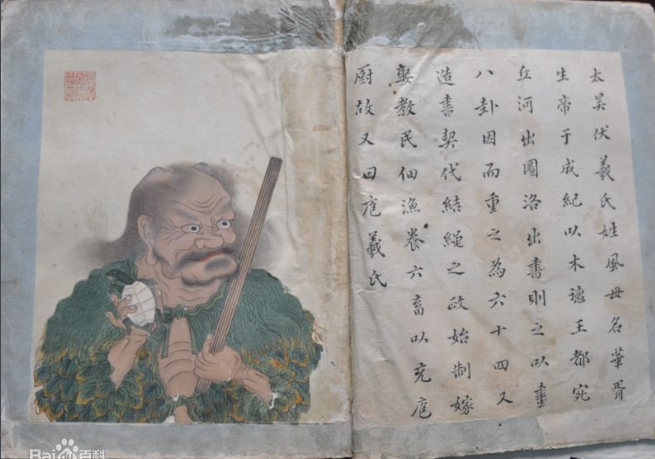 太昊伏羲氏姓風母名華胥
生帝于成紀以木德王都宛
丘河出圖洛出書則之以畫
八卦因而重之為六十四又
造書契代結繩之政始制嫁
娶教民佃漁養六畜以充庖
厨故又曰庖羲氏
Bai百科